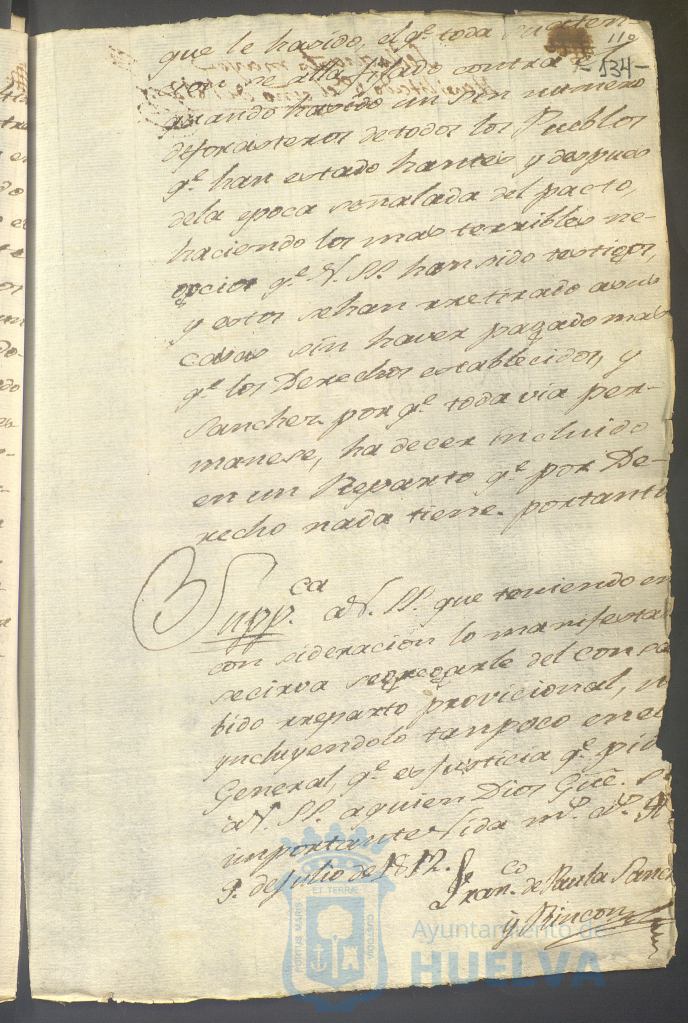 110
134
que le ha sido, el q.e toda
se alla fijado contra
quando havido un sin numero
deforasteros de todos los Pueblos
q.e han estado hantes y despues
dela epoca señalada del pacto,
haciendo los mas terribles ne-
gocios q.e V. SS. han sido testigos,
y estos sehan rretirado asus
casas sin haver pagado mas
q.e los Derechos establecidos, y
Sanchez por q.e toda via per-
manese, ha decer incluido
en un Reparto q.e por De-
recho nada tiene. portanto
Supp.ca aV. SS. que teniendo en
consideracion lo manifesta
secirva segregarle del consa
bido rreparto provicional, n
yncluyendolo tampoco en el
General, q.e es Justicia q.e pid
aV. SS. aquien Dios Gûe. s
importante Vida m.s a.s
9. de Julio de 1812.
Fran.co de Paula Sanc
y Rincon
PORTUS MARIS
ET TERRAE
CUSTODIA
Ayuntamiento de
HUELVA